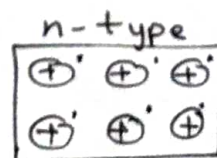 n-type
+ + +
+ + +